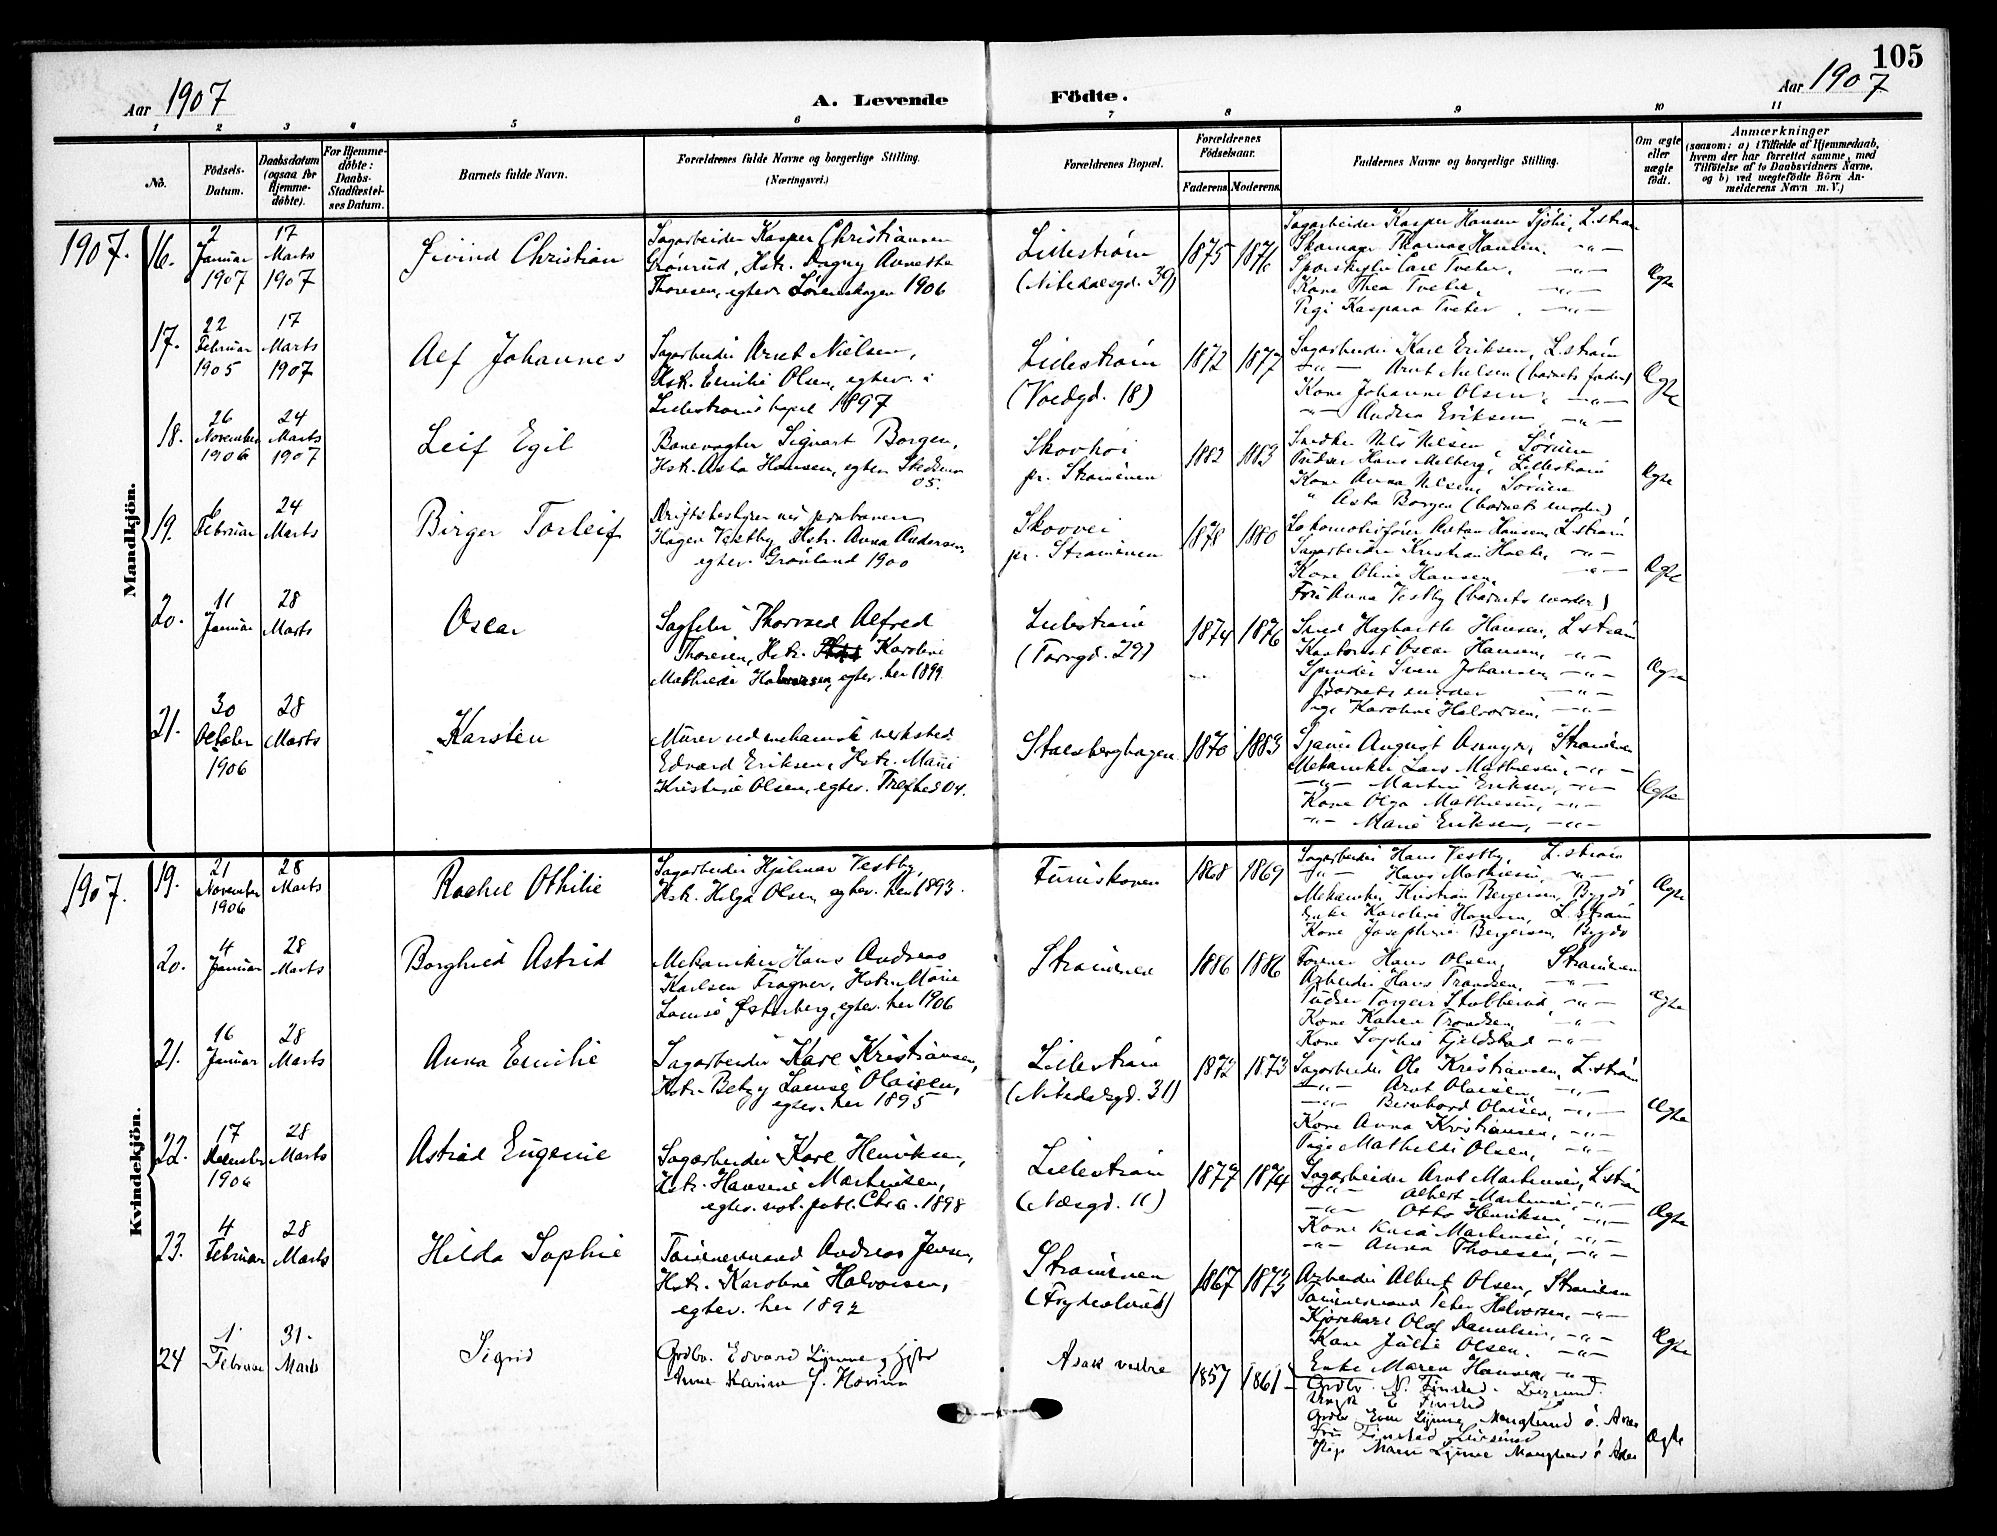 105
Aar 1907
A. Levende Födte.
Aar 1907
1 2 3 4 5 6 7 8 9 10 11
No.
Födsels-Datum.
Daabsdatum (ogsaa for Hjemme-döbte).
For Hjemme-döbte: Daabs-Stadfæstel-ses Datum.
Barnets fulde Navn.
Forældrenes fulde Navne og borgerlige Stilling.
(Næringsvei.)
Forældrenes Bopæl.
Forældrenes Födselsaar.
Faderens. Moderens.
Faddernes Navne og borgerlige Stilling.
Om ægte eller uægte födt.
Anmærkninger
(saasom: a) i Tilfælde af Hjemmedaab, hvem der har forrettet samme, med Tilföielse af to Daabsvidners Navne, og b) ved uægtefödte Börn An-melderens Navn m. V.)
Mandkjön.
1907. 16. 2 Januar 1907 17 Marts 1907
Eivind Christian
Sagarbeider Kasper Christiansen
Grönrud, Hstr. Dagny Annette
Thoresen, egtev. Lörenskogen 1906
Lillestrøm
(Nitedalsgd. 39)
1875 1876
Sagarbeider Kasper Hansen Sjöli, L.strøm
Skomager Thomas Hansen. -"-
Sporskifter Carl Tveter, -"-
Kone Thea Tveter, -"-
Pige Kaspara Tveter. -"-
Ægte
17. 22 Februar 1905 17 Marts 1907
Alf Johannes
Sagarbeider Arnt Nielsen,
Hstr. Emilie Olsen, egtev. i
Lillestrøms kapel 1897
Lillestrøm
(Voldgd. 18)
1872 1877
Sagarbeider Karl Eriksen, L.strøm
-"- Arnt Nielsen (barnets fader)
Kone Johanne Olsen, -"-
-"- Andrea Eriksen -"-
Ægte
18. 26 November 1906 24 Marts 1907
Leif Egil
Banevogter Sigvart Borgen,
Hstr. Asta Hansen, egtev. Skedsmo
05.
Skovhöi
pr. Strømmen
1882 1883
Snedker Nils Nilsen, Sörum
Pudser Hans Melberg, Lillestrøm
Kone Anna Nilsen, Sörum
" Asta Borgen (barnets moder)
Ægte
19. 6 Februar 24 Marts
Birger Torleif
Driftsbestyrer
Hagen Vestby, Hstr. Anna Andersen,
egtev. Grønland 1900
Skovvei
pr. Strømmen
1878 1880
Lokomotivfører Anton Hansen, L.strøm
Sagarbeider Kristian Holter, -"-
Kone Oline Hansen, -"-
Fru Anna Vestby (barnets moder)
Ægte
20. 11 Januar 28 Marts
Oscar
Sagfiler Thorvald Alfred
Thoresen, Hstr. Karoline
Mathilde Halvorsen, egtev. her 1899
Lillestrøm
(Torvgd. 29)
1874 1876
Smed Hagbarth Hansen, L.strøm
Kontorist Oscar Hansen, -"-
Svend Johansen, -"-
Barnets moder -"-
Pige Karoline Halvorsen, -"-
Ægte
21. 30 October 1906 28 Marts
Karsten
Murer ved mekanisk verksted
Edvard Eriksen, Hstr. Marie
Kristine Olsen, egtev. Trefhed 04.
Stalsberghagen
1870 1883
August Strømmen
Mekaniker Lars Mathiesen, -"-
-"- Martin Eriksen, -"-
Kone Olga Mathiesen, -"-
-"- Marie Eriksen, -"-
Ægte
Kvindekjön.
1907. 19. 21 November 1906 28 Marts
Rachel Othilie
Sagarbeider Hjalmar Vestby,
Hstr. Helga Olsen, egtev. her 1893.
Furuskoven
1868 1869
Sagarbeider Hans Vestby, L.strøm
-"- Hans Mathiesen, -"-
Mekaniker Kristian Bergersen, Bygdö
Enke Karoline Hansen, L.strøm
Kone Josephine Bergersen, Bygdö
Ægte
20. 4 Januar 28 Marts
Borghild Astrid
Mekaniker Hans Andreas
Karlsen Fragner, Hstr. Marie
Lovise Østerberg, egtev. her 1906
Strømmen
1886 1886
Former Hans Olsen, Strømmen
Arbeider Hans Trondsen, -"-
Pudser Torgeir Stubberud, -"-
Kone Karen Trondsen, -"-
Kone Sophie Fjeldstad -"-
Ægte
21. 16 Januar 28 Marts
Anna Emilie
Sagarbeider Karl Kristiansen,
Hstr. Betzy Lovise Olaisen,
egtev. her 1895
Lillestrøm
(Nitedalsgd. 31)
1872 1873
Sagarbeider Ole Kristiansen, L.strøm
-"- Arnt Olaisen, -"-
-"- Bernhard Olaisen, -"-
Kone Anna Kristiansen, -"-
Pige Mathilde Olsen, -"-
Ægte
22. 17 December 1906 28 Marts
Astrid Eugenie
Sagarbeider Karl Henriksen,
Hstr. Hansine Martinsen,
egtev. not. publ. Chra. 1898
Lillestrøm
(Næsgd. 11)
1877 1874
Sagarbeider Arnt Martinsen, L.strøm
-"- Albert Martinsen, -"-
-"- Otto Henriksen, -"-
Kone Martinsen, -"-
-"- Anna Thoresen, -"-
Ægte
23. 4 Februar 28 Marts
Hilda Sophie
Tømmermand Andreas Jensen,
Hstr. Karoline Halvorsen,
egtev. her 1892
Strømmen
(Frydenlund)
1867 1873
Arbeider Albert Olsen, Strømmen
Tømmermand Peter Halvorsen, -"-
Kjørekarl Olaf Danielsen, -"-
Kone Julie Olsen. -"-
Enke Maren Hansen, -"-
Ægte
24 1 Februar 31. Marts
Sigrid
Grdbr. Edvard Lynne, Hstr
Anne Karine f. Hovind
Asak vestre
1857 1861
Grdbr. N. Finstad.
E Finstad
Grdbr Even Lynne
Fru Finstad
Pige Maren Lynne
Ægte